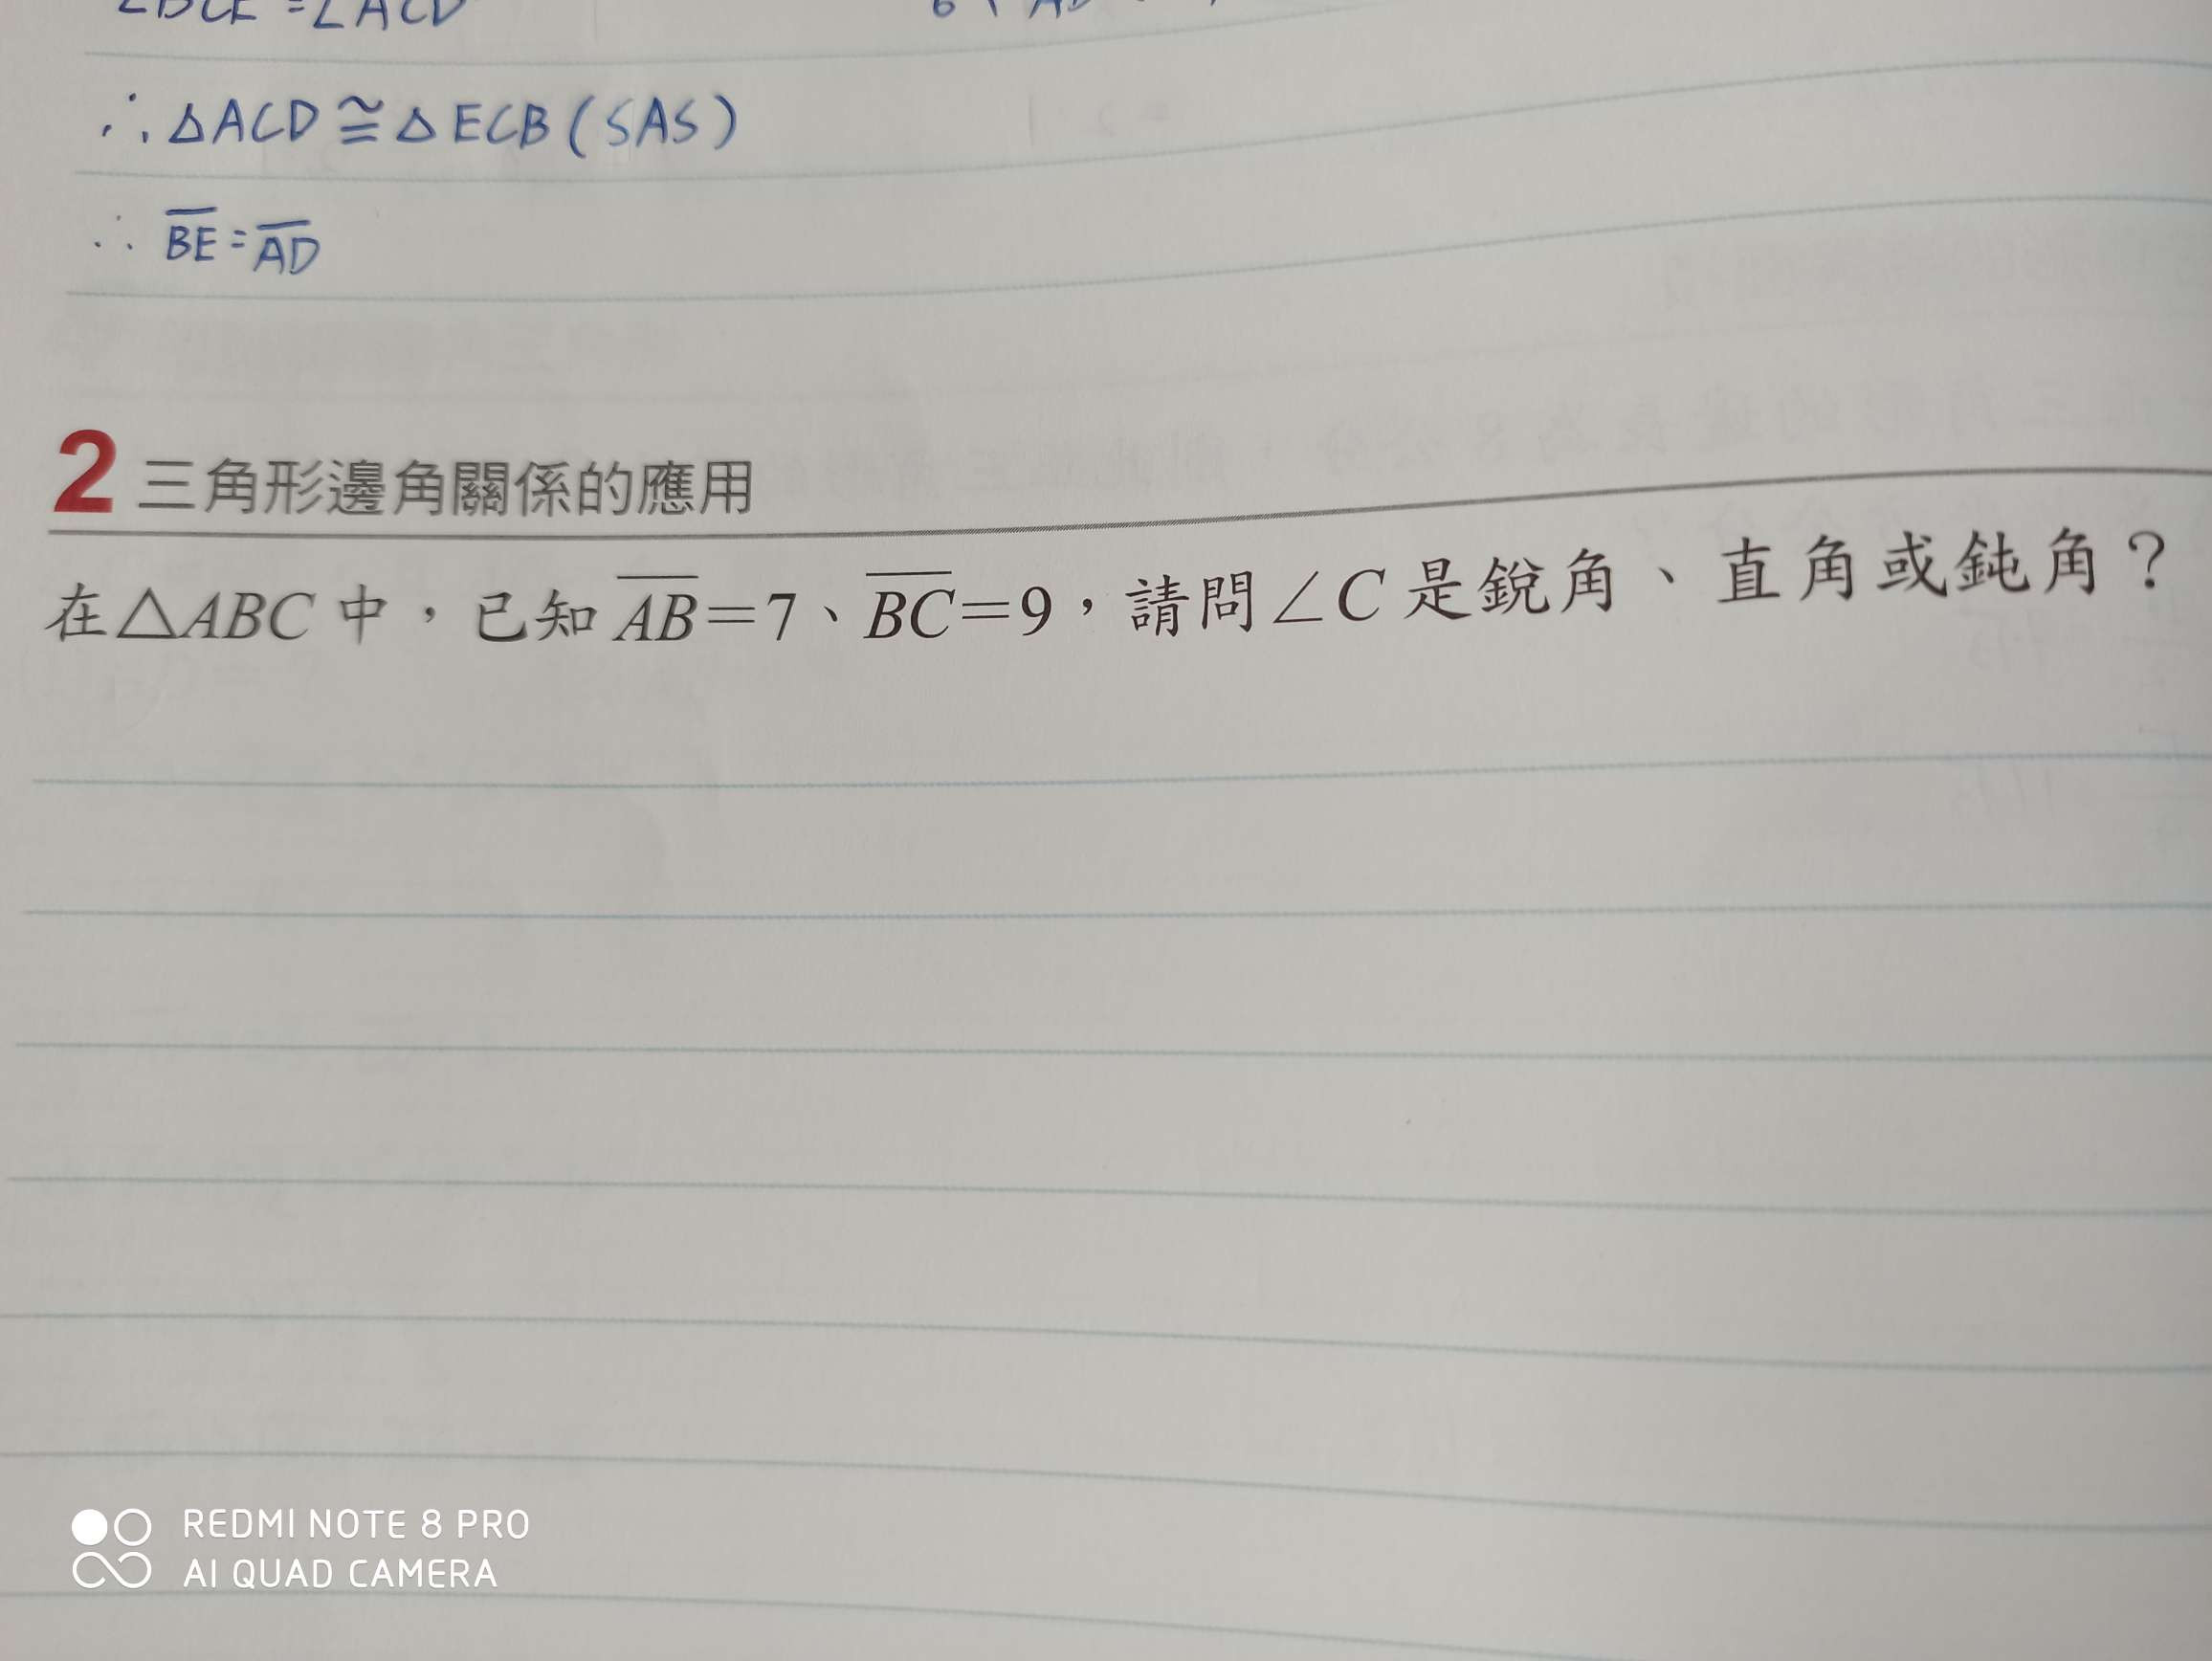 ∠BCE=∠ACD
∴△ACD≅△ECB(SAS)
∴BE=AD
2 三角形邊角關係的應用
在△ABC中，已知AB=7、BC=9，請問∠C是銳角、直角或鈍角？
REDMI NOTE 8 PRO
AI QUAD CAMERA